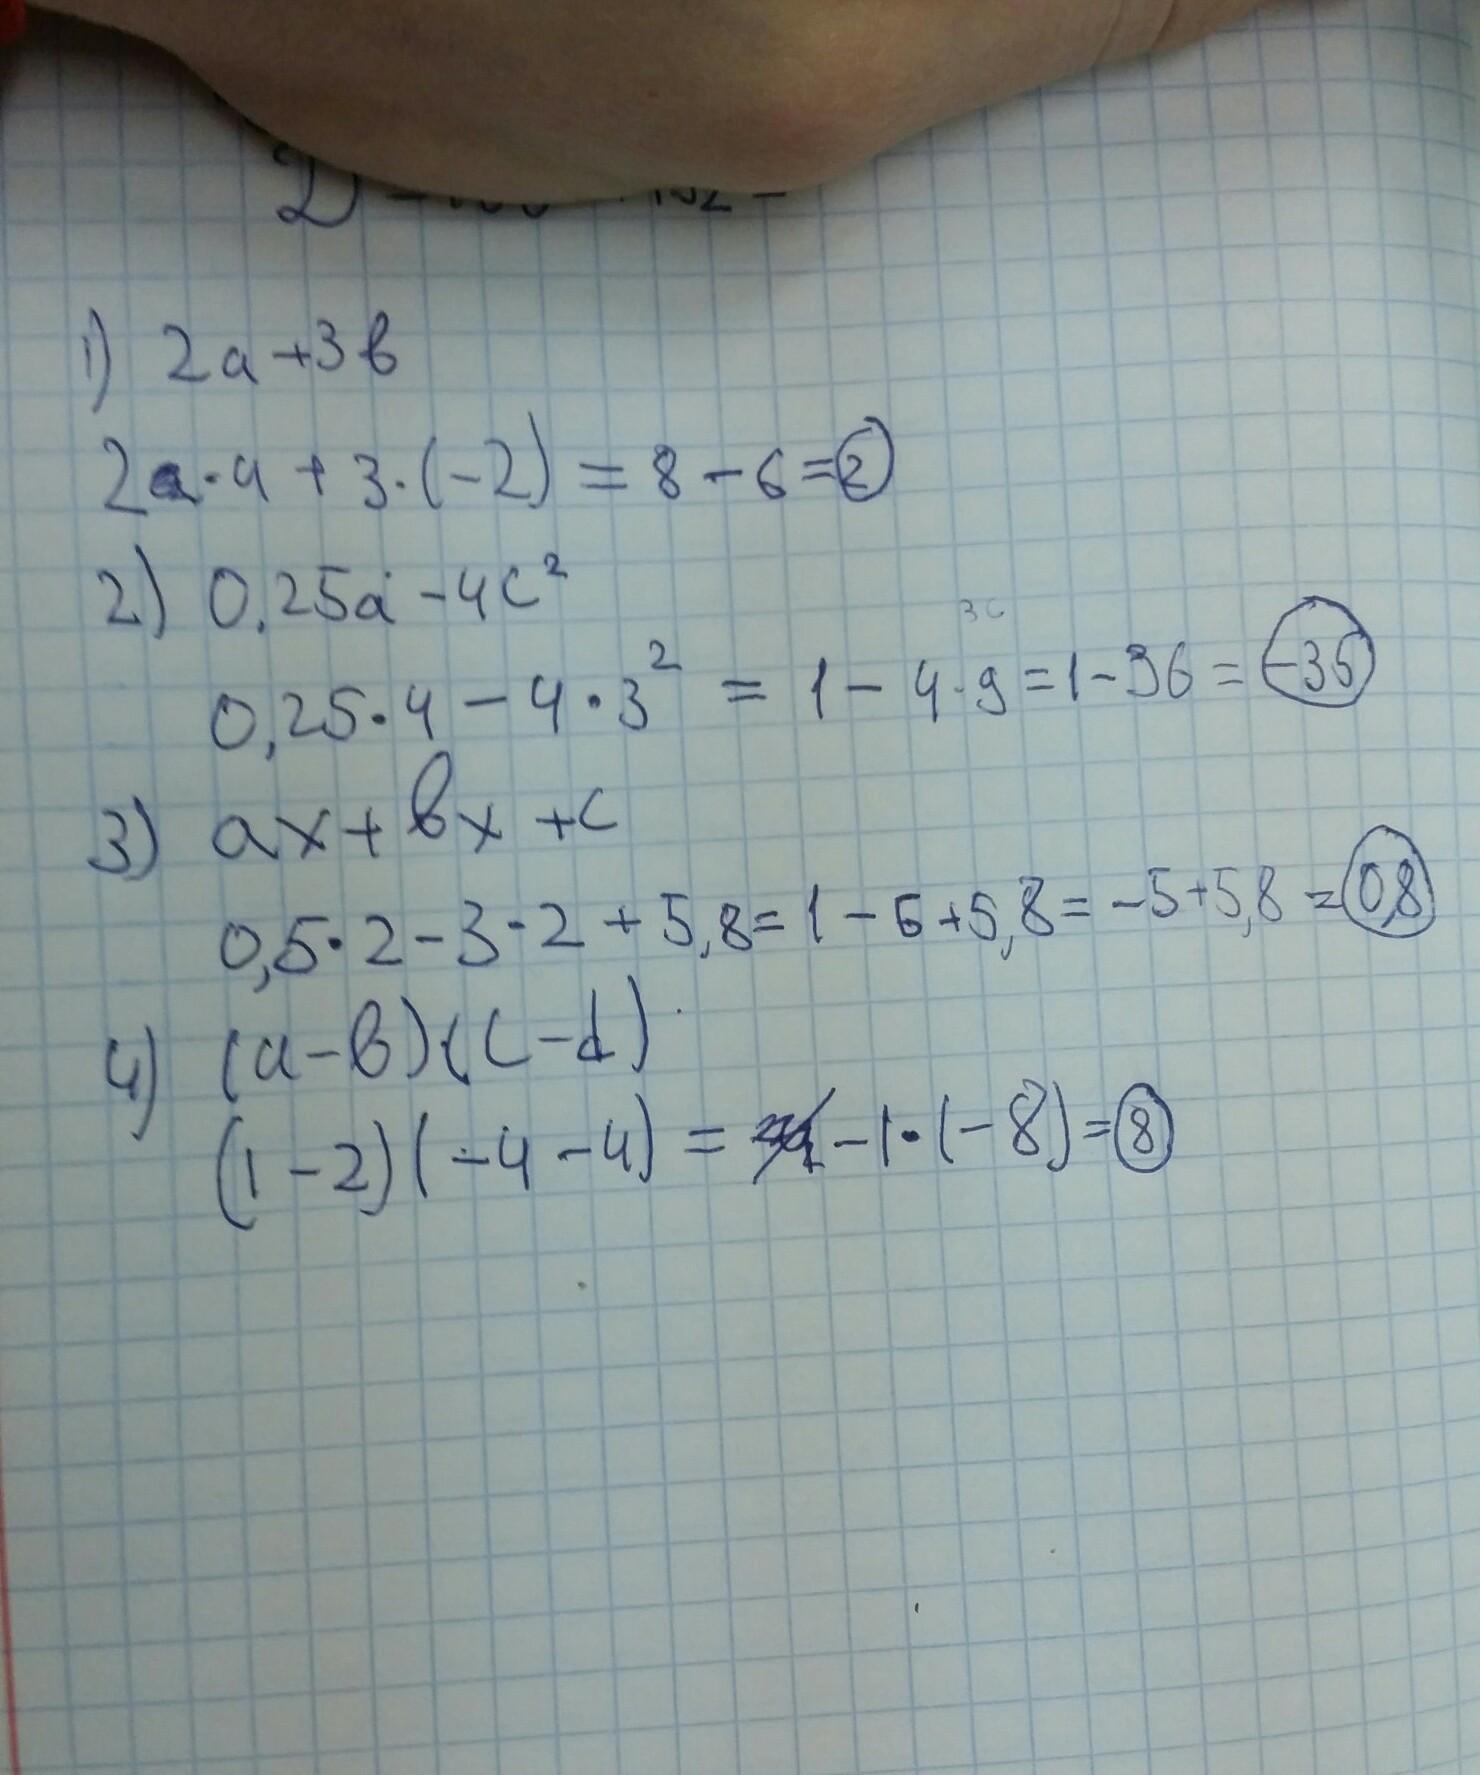 1) 2a+3b
2·4 + 3·(-2) = 8 - 6 = 2
2) 0,25a - 4c²
0,25·4 - 4·3² = 1 - 4·9 = 1 - 36 = -35
3) ax + bx + c
0,5·2 - 3·2 + 5,8 = 1 - 6 + 5,8 = -5 + 5,8 = 0,8
4) (a-b)(c-d)
(1-2)(-4-4) = -1·(-8) = 8